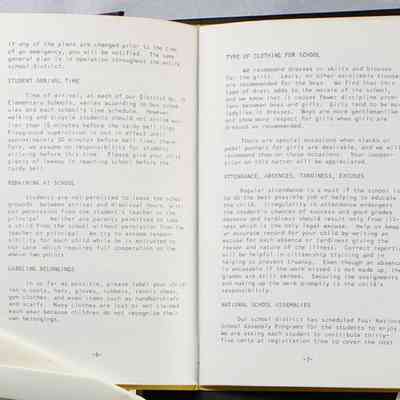 if any of the plans are changed prior to the time
of an emergency, you will be notified. The same
general plan is in operation throughout the entire
school district.
STUDENT ARRIVAL TIME
Time of arrival, at each of our District No.
Elementary Schools, varies according to bus sched-
ules and each school's time schedule. However,
walking and bicycle students should not arrive ear-
lier than 30 minutes before the tardy bell rings.
Playground supervision is not in effect until
approximately 30 minutes before bell time; there-
fore, we assume no responsibility for students
arriving before this time. Please give your child
plenty of leeway in reaching school before the
tardy bell.
REMAINING AT SCHOOL
Students are not permitted to leave the school
grounds between arrival and dismissal hours, with-
out permission from the student's teacher or the
principal. Neither are parents permitted to take
a child from the school without permission from the
teacher or principal. We try to assume respon-
sibility for each child while he is entrusted to
our care which requires full cooperation on the
above two points.
LABELING BELONGINGS
In so far as possible, please label your child-
ren's coats, hats, gloves, rubbers, tennis shoes,
gym clothes, and even items such as handkerchiefs
and scarfs. Many clothes are lost or not claimed
each year because children do not recognize their
own belongings.
-6-
TYPE OF CLOTHING FOR SCHOOL
We recommend dresses or skirts and blouses
for the girls. Levis, or other excellable trousers
are recommended for the boys. We find that the
type of dress adds to the morale of the school,
and we know that it causes fewer discipline prob-
lems between boys and girls. Girls tend to be more
ladylike in dresses. Boys are more gentlemanlike
and show more respect for girls when girls are
dressed as recommended.
There are special occasions when slacks or
pedal pushers for girls are desirable, and we will
recommend them on those occasions. Your cooper-
ation on this matter will be appreciated.
ATTENDANCE, ABSENCES, TARDINESS, EXCUSES
Regular attendance is a must if the school is
to do the best possible job of helping to educate
the child. Irregularity in attendance endangers
the student's chances of success and good grades
Absence and tardiness should result only from ill-
ness which is the only legal excuse. Help us keep
an accurate record for your child by writing an
excuse for each absence or tardiness giving the
reason and nature of the illness. Correct reporting
will be helpful in citizenship training and in
helping to prevent truancy. Even though an absence
is excusable if the work missed is not made up, the
grades are still zeroes. Securing the assignments
and making up the work promptly is the child's
responsibility.
NATIONAL SCHOOL ASSEMBLIES
Our school district has scheduled four National
School Assembly Programs for the students to enjoy.
We are asking each student to contribute thirty-
five cents at registration time to cover the cost
-7-